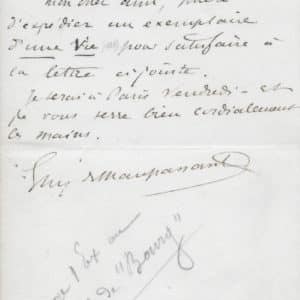 mon cher ami, prière
d'expédier un exemplaire
d'une Vie pour satisfaire à
la lettre ci-jointe.
Je serai à Paris vendredi - et
je vous serre bien cordialement
la mains.
Guy de Maupassant
1 Ex au
de "Bourg"